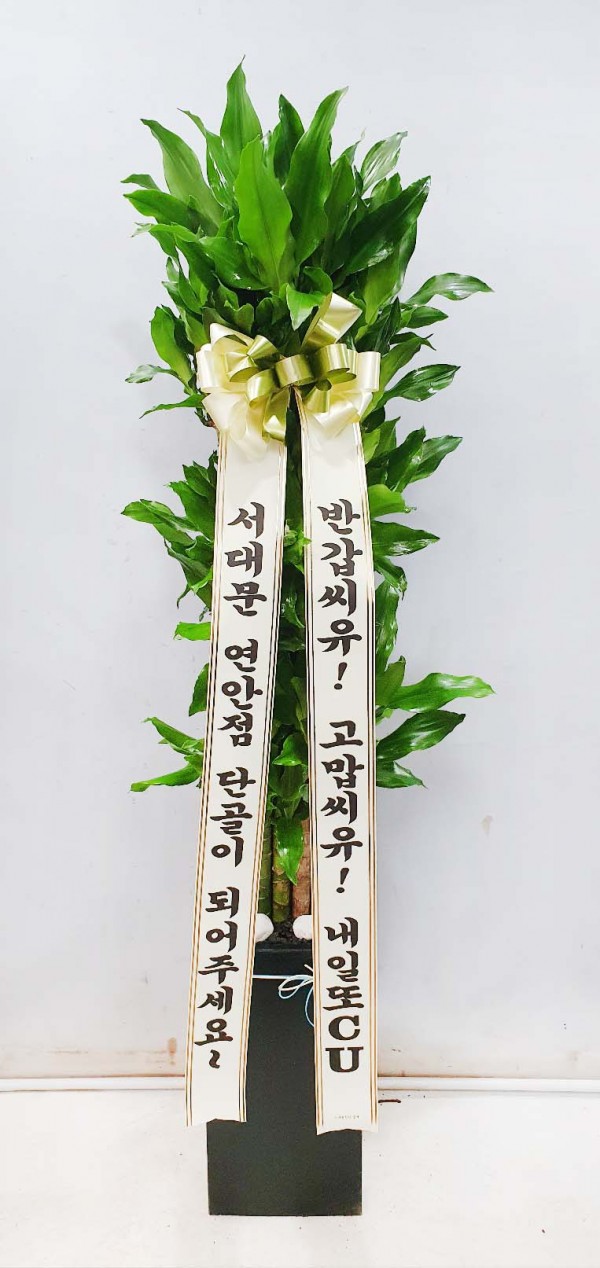 서대문 연안점 단골이 되어주세요~
반갑씨유! 고맙씨유! 내일또CU